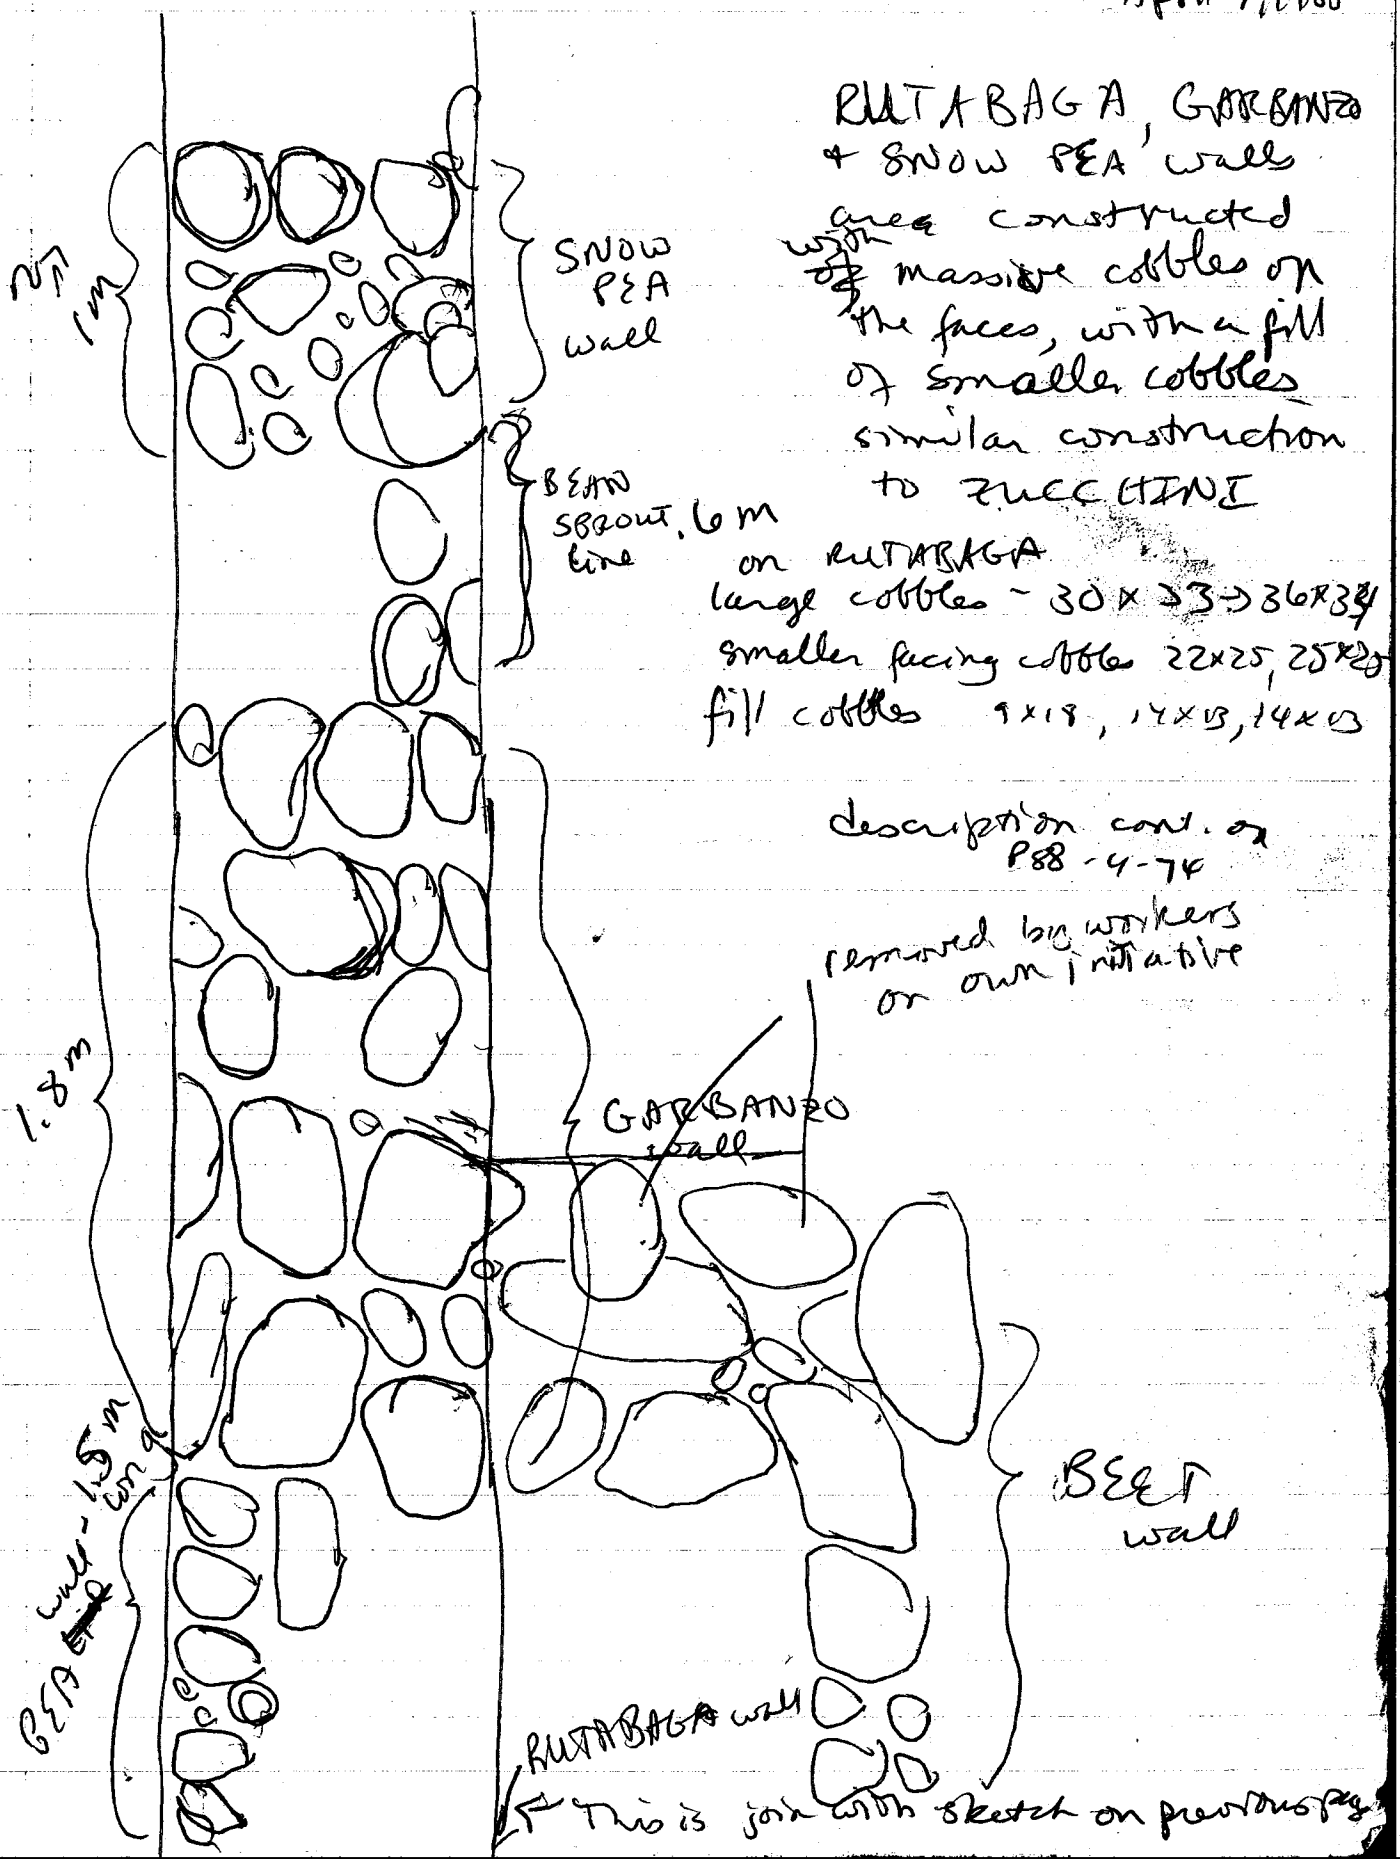 RUTABAGA, GARBANZO
+ SNOW PEA walls
area constructed
with
of massive cobbles on
the faces, with a fill
of smaller cobbles
similar construction
to ZUCCHINI
on RUTABAGA
large cobbles - 30 x 33 → 36 x 34
smaller facing cobbles 22x25, 25x20
fill cobbles 9x18, 14x13, 14x13
description cont. on
P88-4-74
removed by workers
on own initiative
1m
SNOW
PEA
wall
BEAN
SPROUT .6m
line
1.8m
GARBANZO
wall
BEET
wall
wall - 1.5m
long
RUTABAGA wall
This is join with sketch on previous page